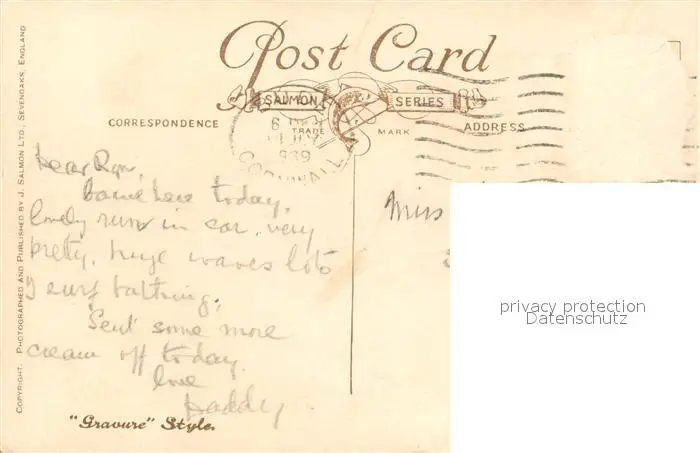 Post Card
SALMON SERIES
TRADE MARK
CORRESPONDENCE
ADDRESS
CORNWALL
Dear
Came here today,
lovely run in car, very
pretty, huge waves lots
surf bathing,
Sent some more
cream off today.
love
Daddy
Miss
privacy protection
Datenschutz
"Gravure" Style.
COPYRIGHT. PHOTOGRAPHED AND PUBLISHED BY J. SALMON LTD., SEVENOAKS, ENGLAND